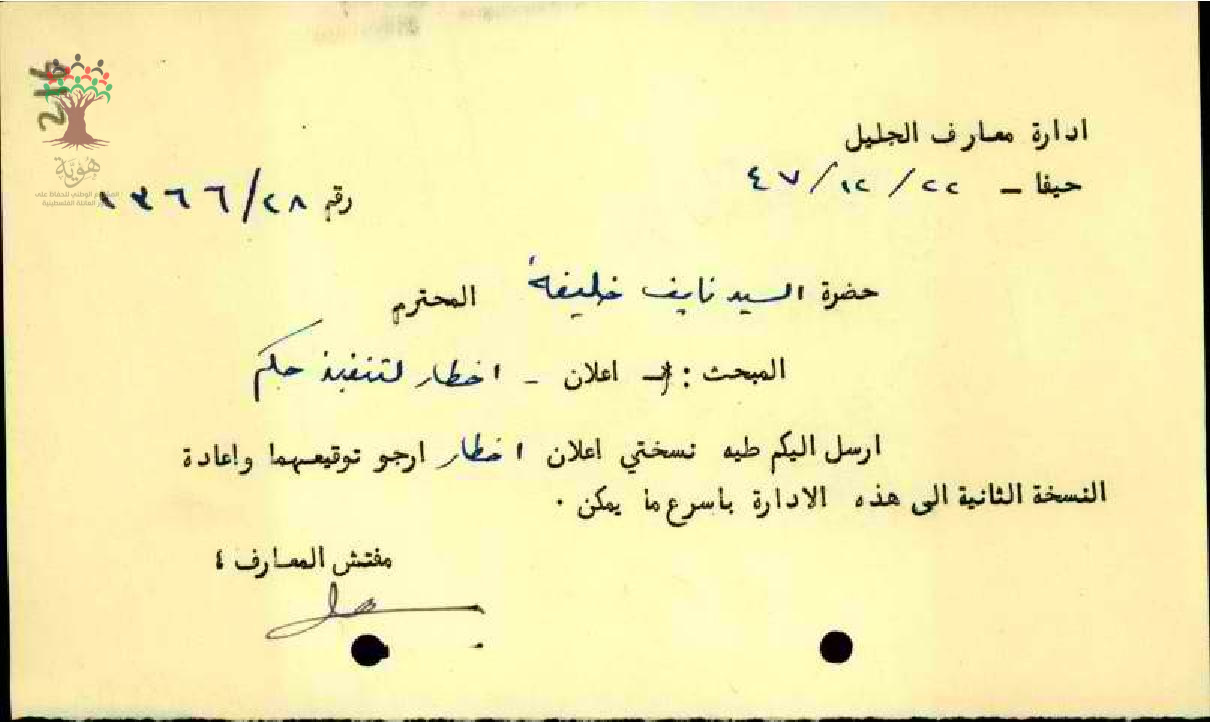 216
هُويَّة
المشروع الوطني للحفاظ على
العائلة الفلسطينية
ادارة معارف الجليل
حيفا - ٢٢ / ١٢ / ٤٧
رقم ٢٨/١٣٦٦
حضرة السيد نايف خليفة المحترم
المبحث : اعلان - اخطار لتنفيذ حكم
ارسل اليكم طيه نسختي اعلان اخطار ارجو توقيعهما واعادة
النسخة الثانية الى هذه الادارة باسرع ما يمكن .
مفتش المعارف ٤